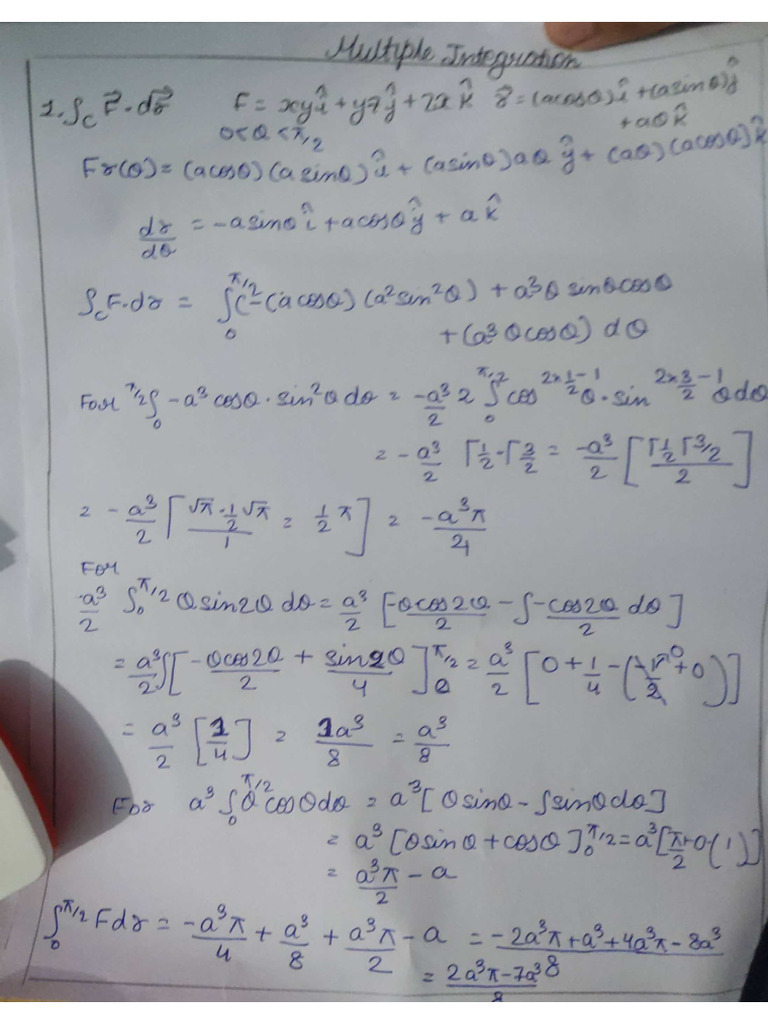 Multiple Integration
1. ∫_C F⃗·dr⃗ F = xyî + yzĵ + zxk̂ r⃗ = (acosθ)î + (asinθ)ĵ + aθk̂
0<θ<π/2
Fr(θ) = (acosθ)(asinθ)î + (asinθ)aθĵ + (aθ)(acosθ)k̂
dr/dθ = -asinθî + acosθĵ + ak̂
∫_C F·dr = ∫_0^{π/2} (-(acosθ)(a²sin²θ) + a³θ sinθcosθ
+ (a³θcosθ) dθ
For ∫_0^{π/2} -a³cosθ·sin²θdθ = -a³/2 2∫_0^{π/2} cos^{2×1/2-1}θ·sin^{2×3/2-1}θdθ
= -a³/2 Γ1/2·Γ3/2 = -a³/2 [Γ1/2 Γ3/2 / 2]
= -a³/2 [√π·1/2√π / 1 = 1/2 π] = -a³π/4
For
a³/2 ∫_0^{π/2} θsin2θdθ = a³/2 [-θcos2θ/2 - ∫-cos2θ/2 dθ]
= a³/2 ∫[-θcos2θ/2 + sin2θ/4]_0^{π/2} = a³/2 [0 + 1/4 - (-1/2 + 0)]
= a³/2 [1/4] = 1a³/8 = a³/8
For a³∫_0^{π/2} θcosθdθ = a³[θsinθ - ∫sinθdθ]
= a³[θsinθ + cosθ]_0^{π/2} = a³[π/2+0-(1)]
= a³π/2 - a
∫_0^{π/2} Fdr = -a³π/4 + a³/8 + a³π/2 - a = -2a³π+a³+4a³π-8a³/8
= 2a³π-7a³/8